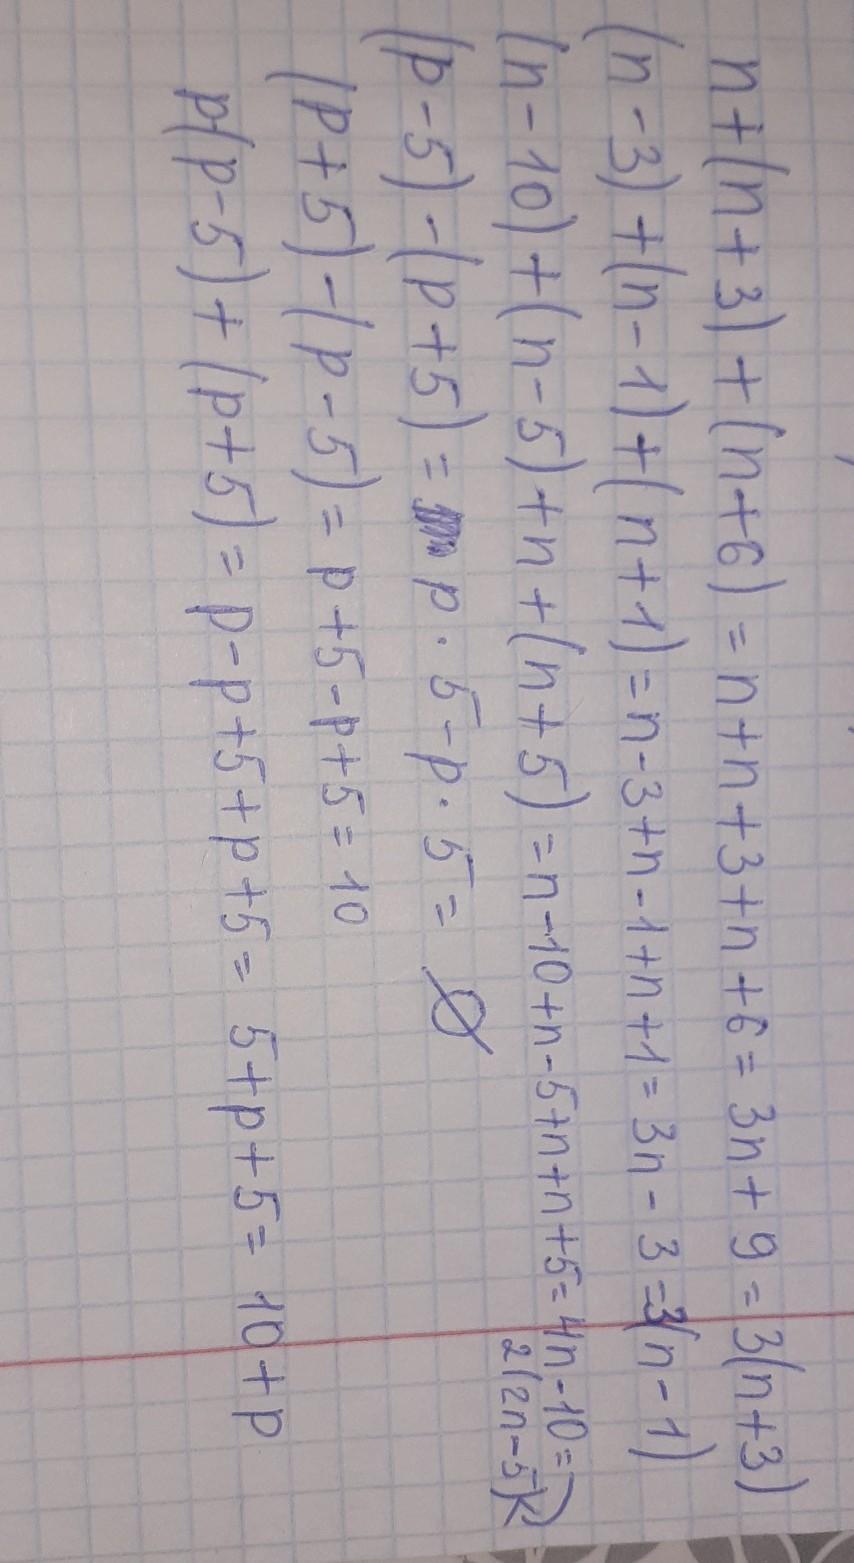 n+(n+3)+(n+6)=n+n+3+n+6=3n+9=3(n+3)
(n-3)+(n-1)+(n+1)=n-3+n-1+n+1=3n-3=3(n-1)
(n-10)+(n-5)+n+(n+5)=n-10+n-5+n+n+5=4n-10=
2(2n-5)
(p-5)-(p+5)= p·5-p·5= ∅
(p+5)-(p-5)=p+5-p+5=10
p(p-5)+(p+5)=p-p+5+p+5= 5+p+5= 10+p